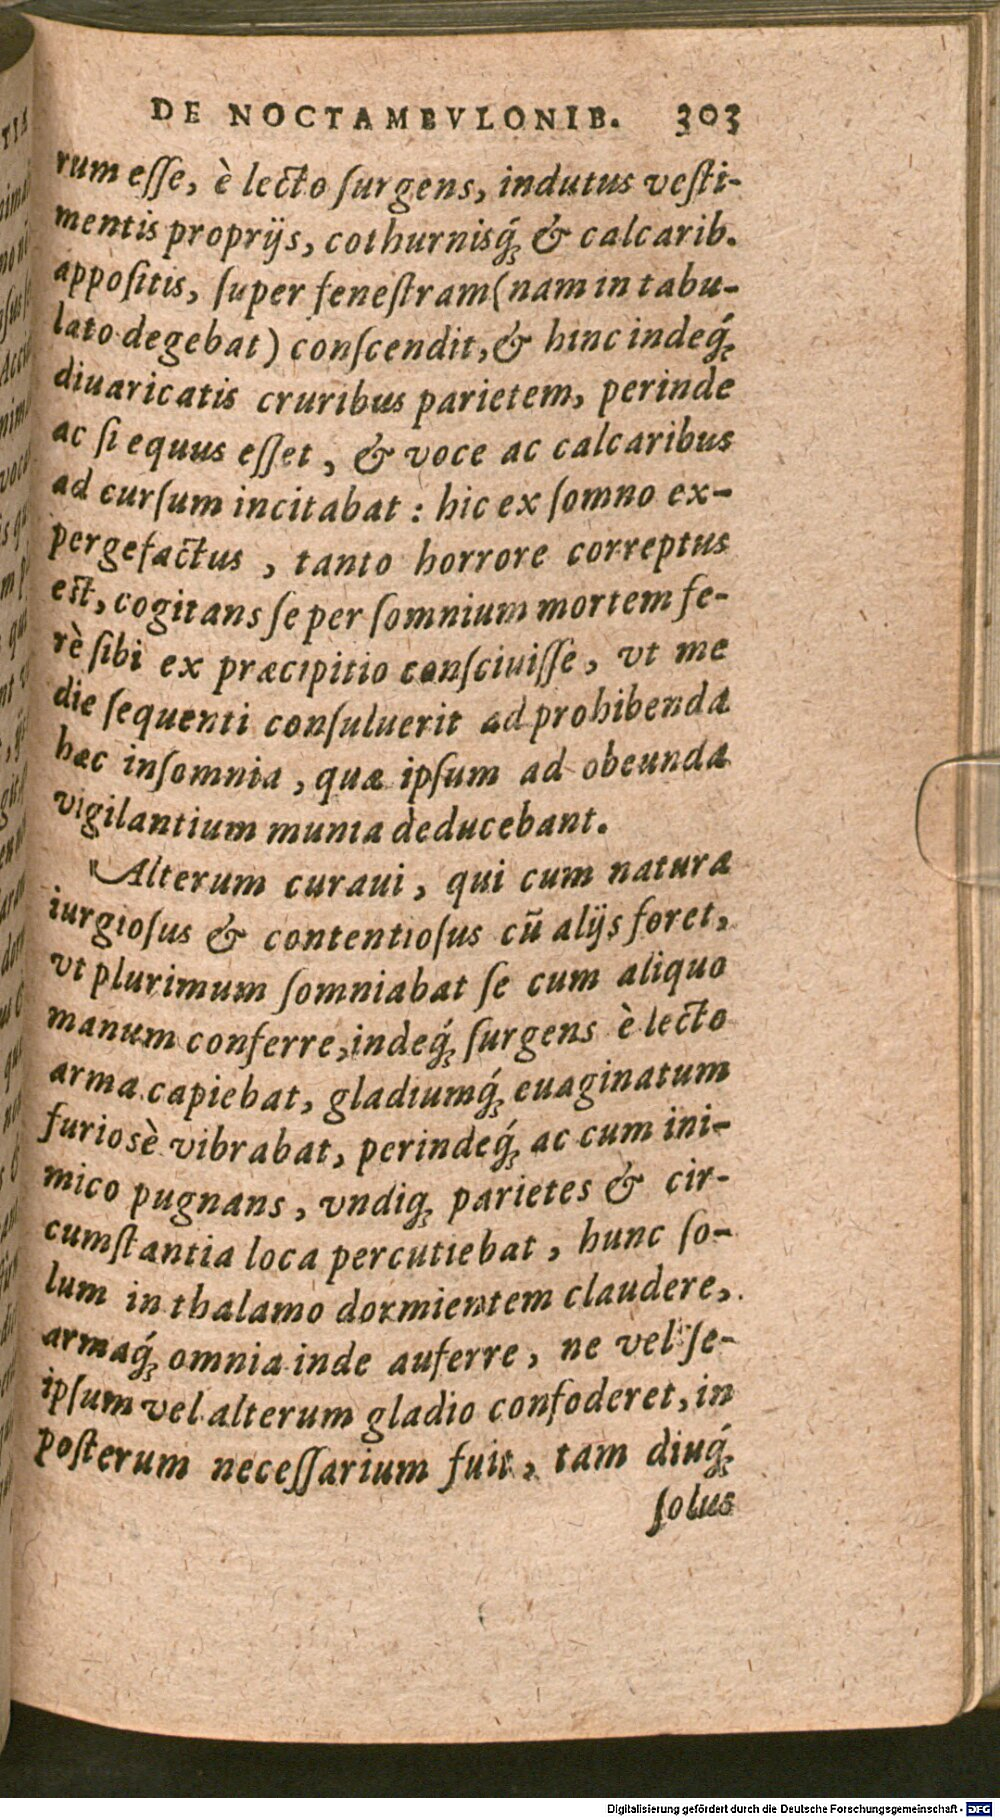 DE NOCTAMBVLONIB. 303
rum eſſe, è lecto ſurgens, indutus veſti-
mentis proprijs, cothurnisq́; & calcarib.
appoſitis, ſuper feneſtram (nam in tabu-
lato degebat) conſcendit, & hinc indeq́;
diuaricatis cruribus parietem, perinde
ac ſi equus eſſet, & voce ac calcaribus
ad curſum incitabat: hic ex ſomno ex-
pergefactus, tanto horrore correptus
eſt, cogitans ſe per ſomnium mortem fe-
rè ſibi ex præcipitio conſciuiſſe, vt me
die ſequenti conſuluerit ad prohibenda
hæc inſomnia, quæ ipſum ad obeunda
vigilantium munia deducebant.
Alterum curaui, qui cum natura
iurgioſus & contentioſus cū alijs foret,
vt plurimum ſomniabat ſe cum aliquo
manum conferre, indeq́; ſurgens è lecto
arma capiebat, gladiumq́; euaginatum
furiosè vibrabat, perindeq́; ac cum ini-
mico pugnans, vndiq; parietes & cir-
cumſtantia loca percutiebat, hunc ſo-
lum in thalamo dormientem claudere,
armaq́; omnia inde auferre, ne vel ſe-
ipſum vel alterum gladio confoderet, in
poſterum neceſſarium fuit, tam diuq́;
ſolus
Digitalisierung gefördert durch die Deutsche Forschungsgemeinschaft - DFG